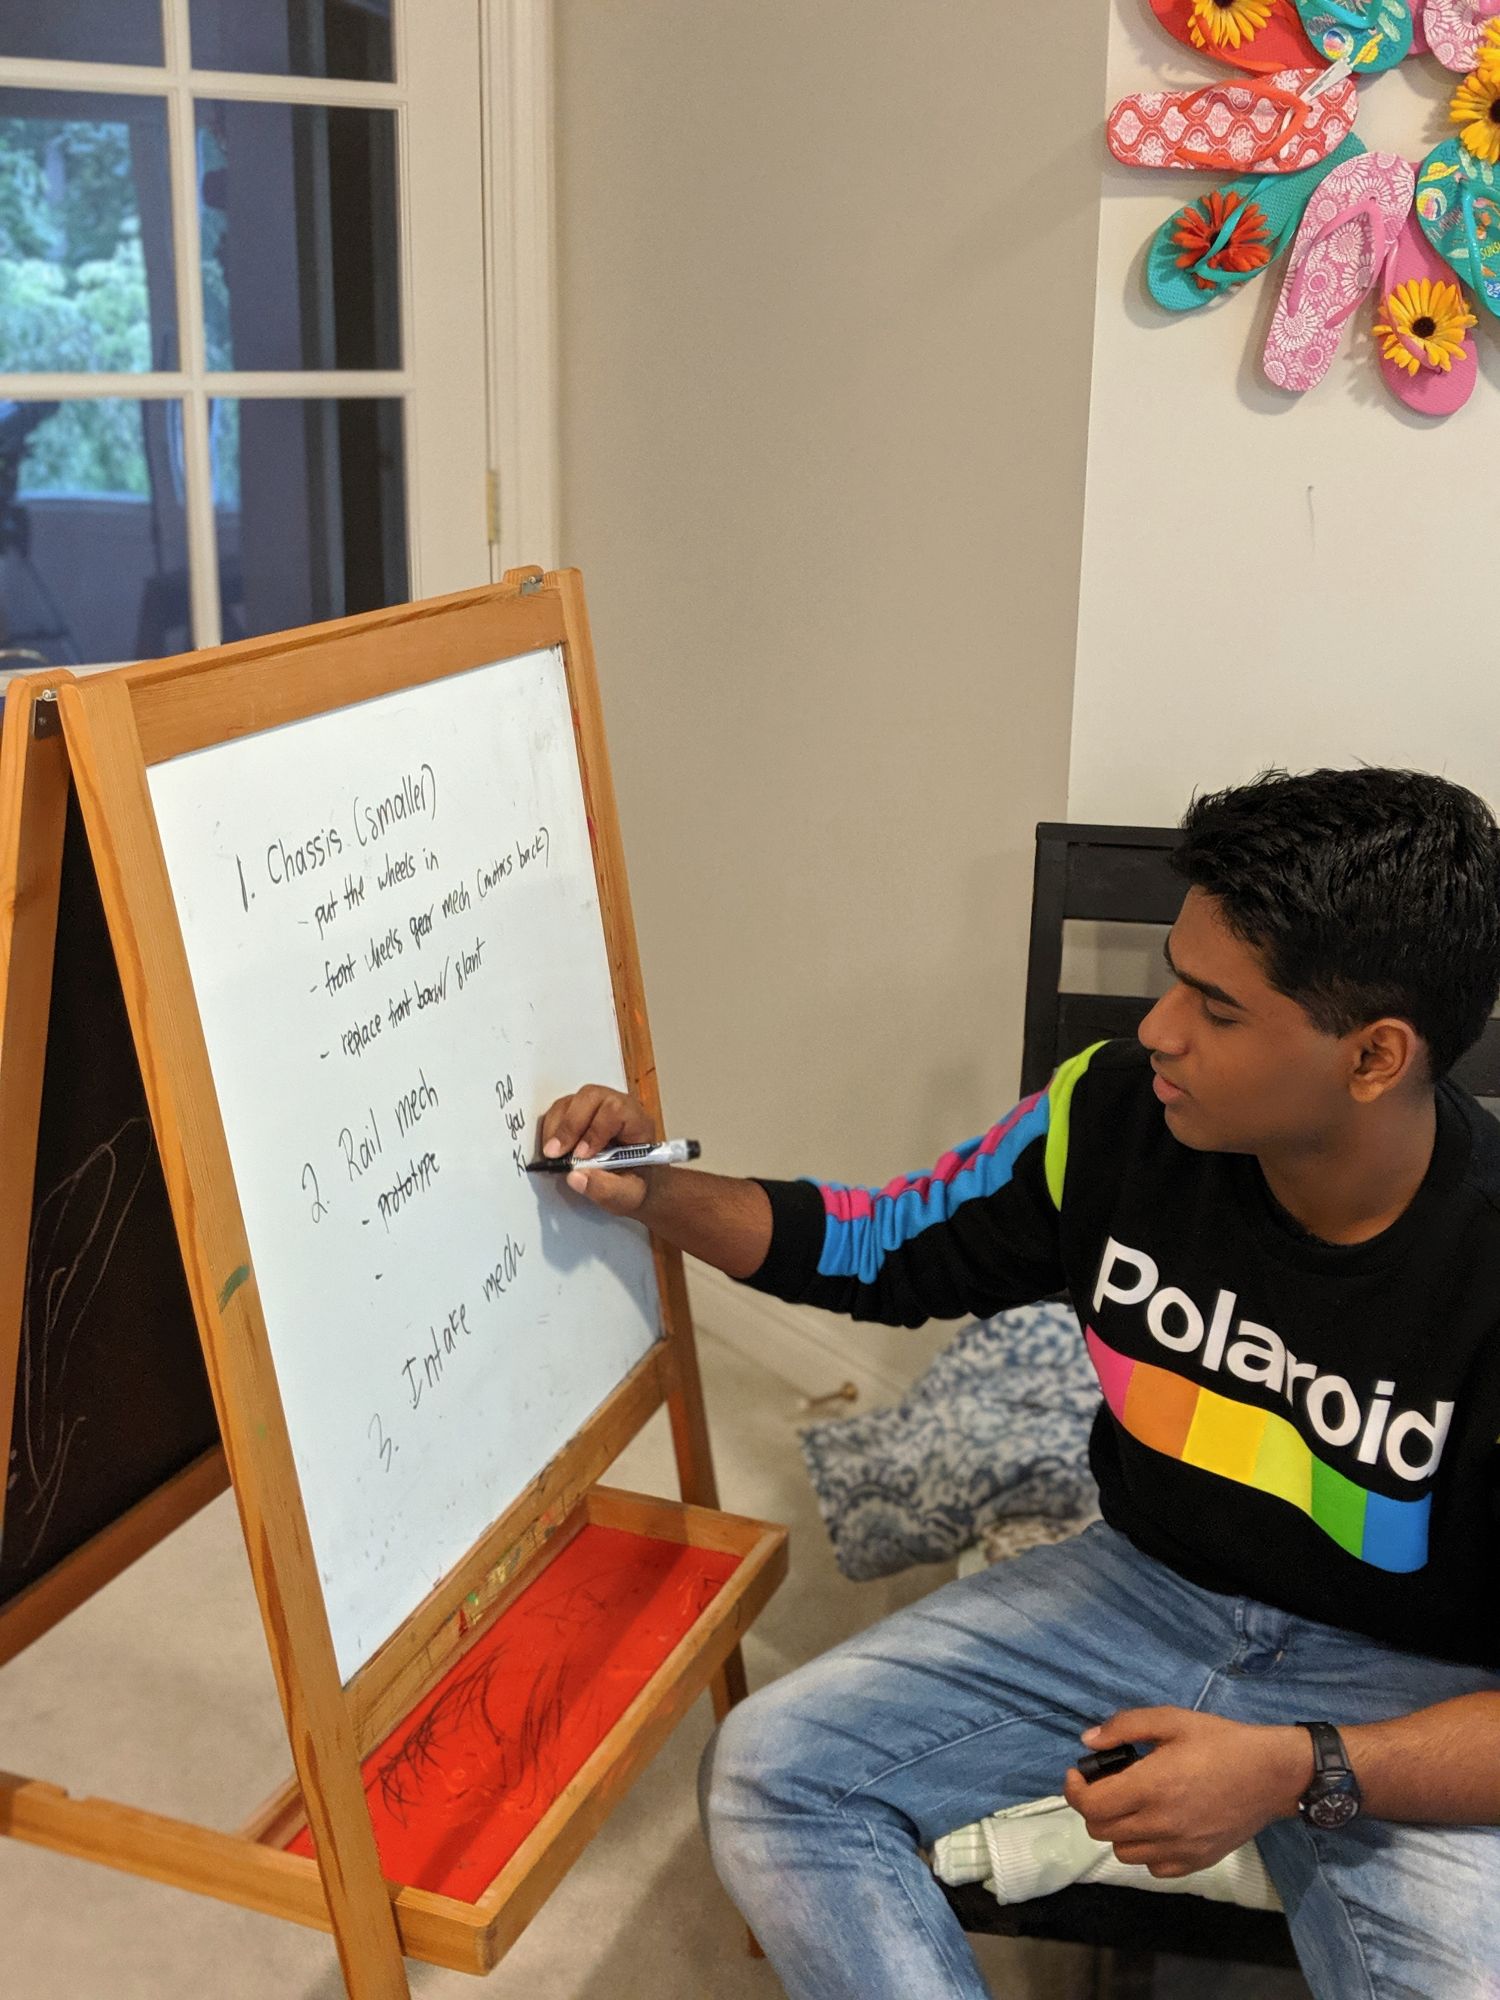 1. Chassis (smaller)
- put the wheels in
- front wheels gear mech (motors back)
- replace front bar w/ slant
2. Rail mech
- prototype
-
3. Intake mech
Did
you
K
Polaroid